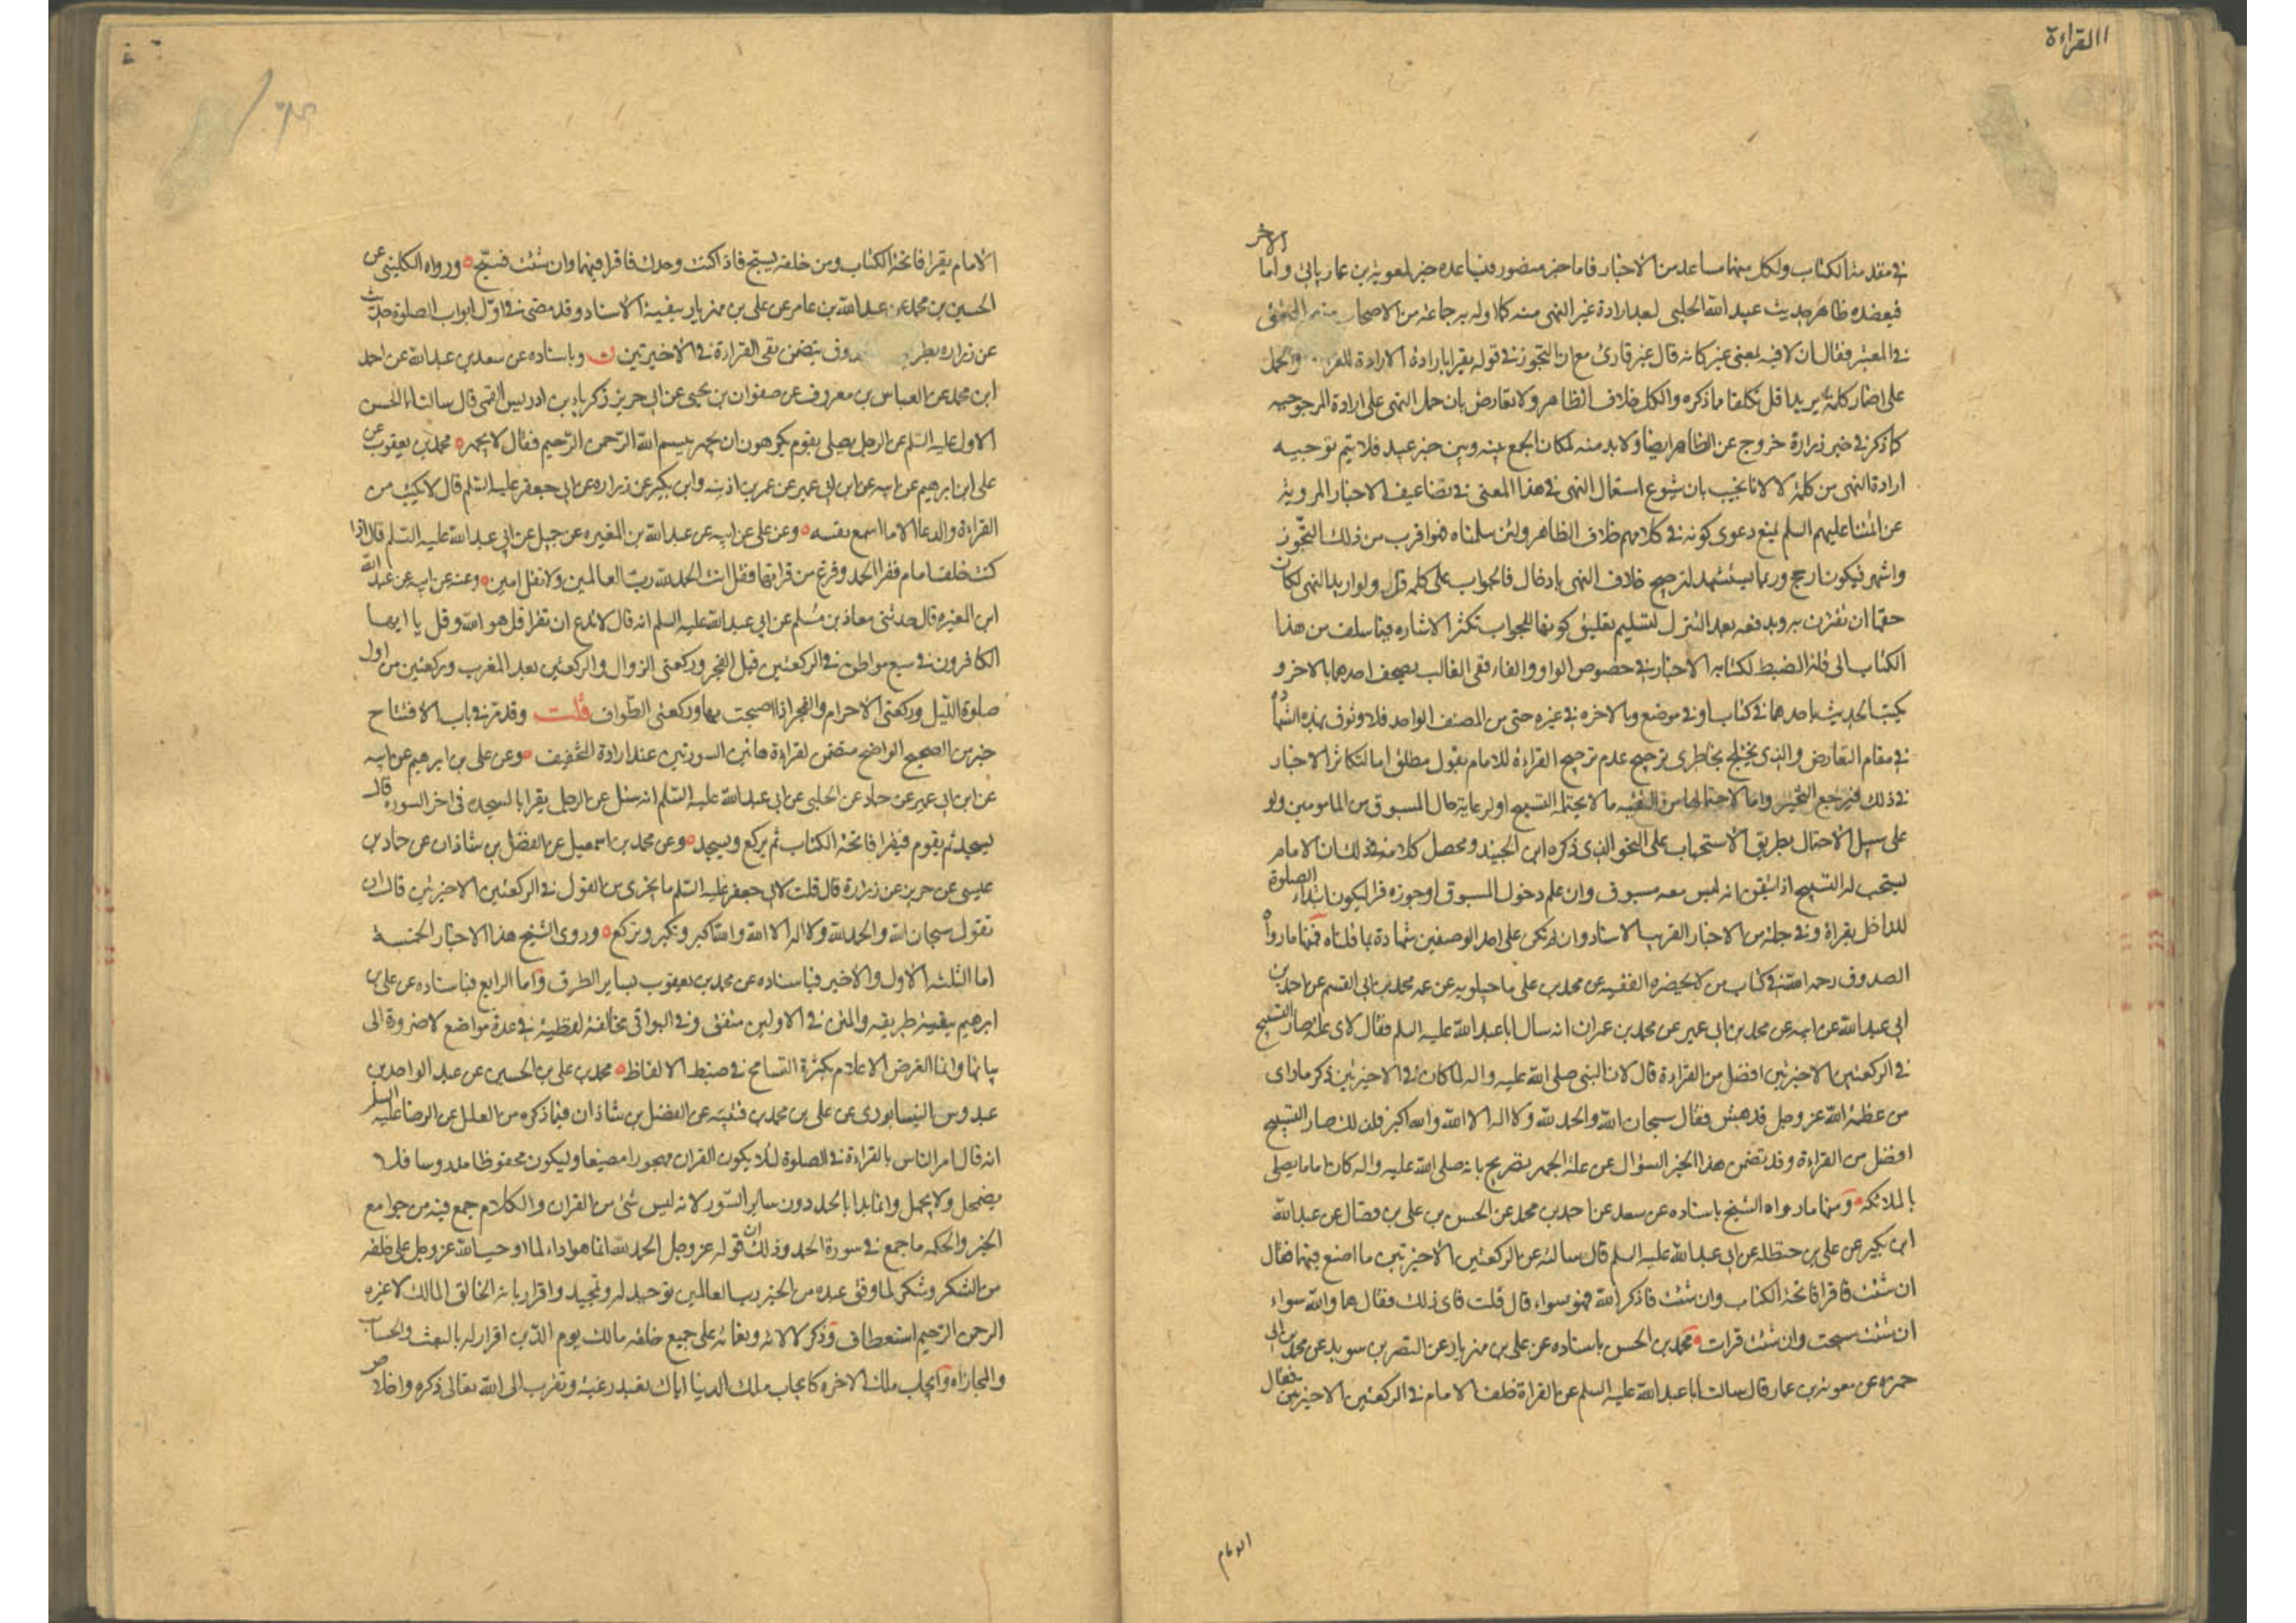 القراءة
في مقدمة الكتاب ولكل منهما مساعد من الاخبار فاما خبر منصور فيساعده خبر لمعوية بن عمار ياتى واما الاخر
فيعضده ظاهر حديث عبيد الله الحلبى لبعد ارادة غير النهى منه كما اوله به جماعة من الاصحاب منهم المحقق
في المعتبر فقال ان لا فيه بمعنى غير كانه قال غير قارئ مع ان التجوز في قوله يقرا بارادة الارادة للقراءة والحمل
على اضمار كلمة يريد اقل تكلفا مما ذكره والكل خلاف الظاهر ولا تعارض بان حمل النهى على ارادة المرجوحيه
كما ذكر في خبر زرارة خروج عن الظاهر ايضا ولا بد منه لمكان الجمع بينه وبين خبر عبيد فلا يتم توجيه
ارادة النهى من كلمة لا لانا نجيب بان شيوع استعمال النهى في هذا المعنى في تضاعيف الاخبار المروية
عن ائمتنا عليهم السلم يمنع دعوى كونه في كلامهم خلاف الظاهر ولئن سلمناه فهو اقرب من ذلك التجوز
واشهر فيكون ارجح وربما يستشهد لترجيح خلاف النهى بادخال فا الجواب على كلمة قل ولو اريد النهى لكان
حقها ان تقترن به ويدفعه بعد التنزل لتسليم تعليق كونها للجواب تكثر الاشاره فيما سلف من هذا
الكتاب الى قلة الضبط لكتابه الاخبار في خصوص الواو والفاء ففى الغالب يصحف احدهما بالاخر و
يكتب الحديث باحدهما في كتاب او في موضع وبالاخره في غيره حتى من المصنف الواحد فلا وثوق بهذه الشهادة
في مقام التعارض والذى يختلج بخاطرى ترجيح عدم ترجيح القراءة للامام بقول مطلق اما لتكاثر الاخبار
في ذلك فيرجع التخيير واما لاحتمالها من التقيه ما لا يحتمله التسبيح او لرعاية حال المسبوق من المامومين ولو
على سبيل الاحتمال بطريق الاستحباب على النحو الذى ذكره ابن الجنيد ومحصل كلامه في ذلك ان الامام
يستحب له التسبيح اذا تيقن انه ليس معه مسبوق وان علم دخول المسبوق او جوزه قرا ليكون ابتداء الصلوة
للداخل بقراة وفي جلة من الاخبار القريب الاسناد وان لم تكن على احد الوصفين شهادة بما قلناه فمنها ما رواه
الصدوق رحمه الله في كتاب من لا يحضره الفقيه عن محمد بن على ماجيلويه عن عمه محمد بن ابى القسم عن احمد بن
ابى عبد الله عن ابيه عن محمد بن ابى عمير عن محمد بن عمران انه سال ابا عبد الله عليه السلم فقال لاى علة صار التسبيح
في الركعتين الاخيرتين افضل من القراءة قال لان النبى صلى الله عليه واله لما كان في الاخيرتين ذكر ما راى
من عظمة الله عز وجل فدهش فقال سبحان الله والحمد لله ولا اله الا الله والله اكبر فلذلك صار التسبيح
افضل من القراءة وقد تضمن هذا الخبر السؤال عن علة الجهر بتصريح بانه صلى الله عليه واله كان اماما يصلى
بالملائكة ومنها ما رواه الشيخ باسناده عن سعد عن احمد بن محمد عن الحسن بن على بن فضال عن عبد الله
ابن بكير عن على بن حنظلة عن ابى عبد الله عليه السلم قال سالته عن الركعتين الاخيرتين ما اصنع فيهما فقال
ان شئت فاقرا فاتحة الكتاب وان شئت فاذكر الله فهو سواء قال قلت فاى ذلك فقال هما والله سواء
ان شئت سبحت وان شئت قرات ومحمد بن الحسن باسناده عن على بن مهزيار عن النضر بن سويد عن محمد بن ابى
حمزه عن معوية بن عمار قال سالت ابا عبد الله عليه السلم عن القراة خلف الامام في الركعتين الاخيرتين فقال
الامام
الامام يقرا فاتحة الكتاب ومن خلفه يسبح فاذا كنت وحدك فاقرا فيهما وان شئت فسبح ورواه الكلينى عن
الحسين بن محمد عن عبد الله بن عامر عن على بن مهزيار ببقية الاسناد وقد مضى في اول ابواب الصلوة حديث
عن زراره بطريق الصدوق يتضمن نفى القراءة في الاخيرتين ن وباسناده عن سعد بن عبد الله عن احمد
ابن محمد عن العباس بن معروف عن صفوان بن يحيى عن ابى جرير زكريا بن ادريس القمى قال سالت ابا الحسن
الاول عليه السلم عن الرجل يصلى بقوم يكرهون ان يجهر ببسم الله الرحمن الرحيم فقال لا يجهر محمد بن يعقوب عن
على ابن ابرهيم عن ابيه عن ابن ابى عمير عن عمر بن اذينه وابن بكير عن زراره عن ابى جعفر عليه السلم قال لا يكتب من
القراءة والدعا الا ما اسمع نفسه وعن على عن ابيه عن عبد الله بن المغيره عن جميل عن ابى عبد الله عليه السلم قال اذا
كنت خلف امام فقرا الحمد وفرغ من قراءتها فقل انت الحمد لله رب العالمين ولا تقل امين وعنه عن ابيه عن عبد الله
ابن المغيره قال حدثنى معاذ بن مسلم عن ابى عبد الله عليه السلم انه قال لا تدع ان تقرا قل هو الله وقل يا ايها
الكافرون في سبع مواطن في الركعتين قبل الفجر وركعتى الزوال والركعتين بعد المغرب وركعتين من اول
صلوة الليل وركعتى الاحرام والفجر اذا اصبحت بها وركعتى الطواف قلت وقد مر في باب الافتتاح
خبر من الصحيح الواضح متضمن لقراءة هاتين السورتين عند ارادة التخفيف وعن على بن ابرهيم عن ابيه
عن ابن ابى عمير عن حماد عن الحلبى عن ابى عبد الله عليه السلم انه سئل عن الرجل يقرا بالسجده في اخر السورة قال
يسجد ثم يقوم فيقرا فاتحة الكتاب ثم يركع ويسجد وعن محمد بن اسمعيل عن الفضل بن شاذان عن حماد بن
عيسى عن حريز عن زرارة قال قلت لابى جعفر عليه السلم ما يجزى من القول في الركعتين الاخيرتين قال ان
تقول سبحان الله والحمد لله ولا اله الا الله والله اكبر وتكبر وتركع وروى الشيخ هذا الاخبار الخمسة
اما الثلثه الاول والاخير فباسناده عن محمد بن يعقوب بساير الطرق واما الرابع فباسناده عن على بن
ابرهيم ببقية طريقه والمتن في الاولين متفق وفي البواقى مخالفة لفظية في عدة مواضع لا ضروة الى
بيانها وانما الغرض الاعلام بكثرة التسامح في ضبط الالفاظ محمد بن على بن الحسين عن عبد الواحد بن
عبدوس النيسابورى عن على بن محمد بن قتيبه عن الفضل بن شاذان فيما ذكره من العلل عن الرضا عليه السلم
انه قال امر الناس بالقراءة في الصلوة لئلا يكون القران مهجورا مضيعا وليكون محفوظا مدروسا فلا
يضمحل ولا يجهل وانما بدا بالحمد دون ساير السور لانه ليس شئ من القران والكلام جمع فيه من جوامع
الخير والحكمه ما جمع في سورة الحمد وذلك ان قوله عز وجل الحمد لله انما هو اداء لما اوجب الله عز وجل على خلقه
من الشكر وشكر لما وفق عبده من الخير رب العالمين توحيد له وتمجيد واقرار بانه الخالق المالك لا غيره
الرحمن الرحيم استعطاف وذكر لالائه ونعمائه على جميع خلقه مالك يوم الدين اقرار له بالبعث والحساب
والمجازاه وايجاب ملك الاخره كايجاب ملك الدنيا اياك نعبد رغبة وتقرب الى الله تعالى ذكره واخلاص